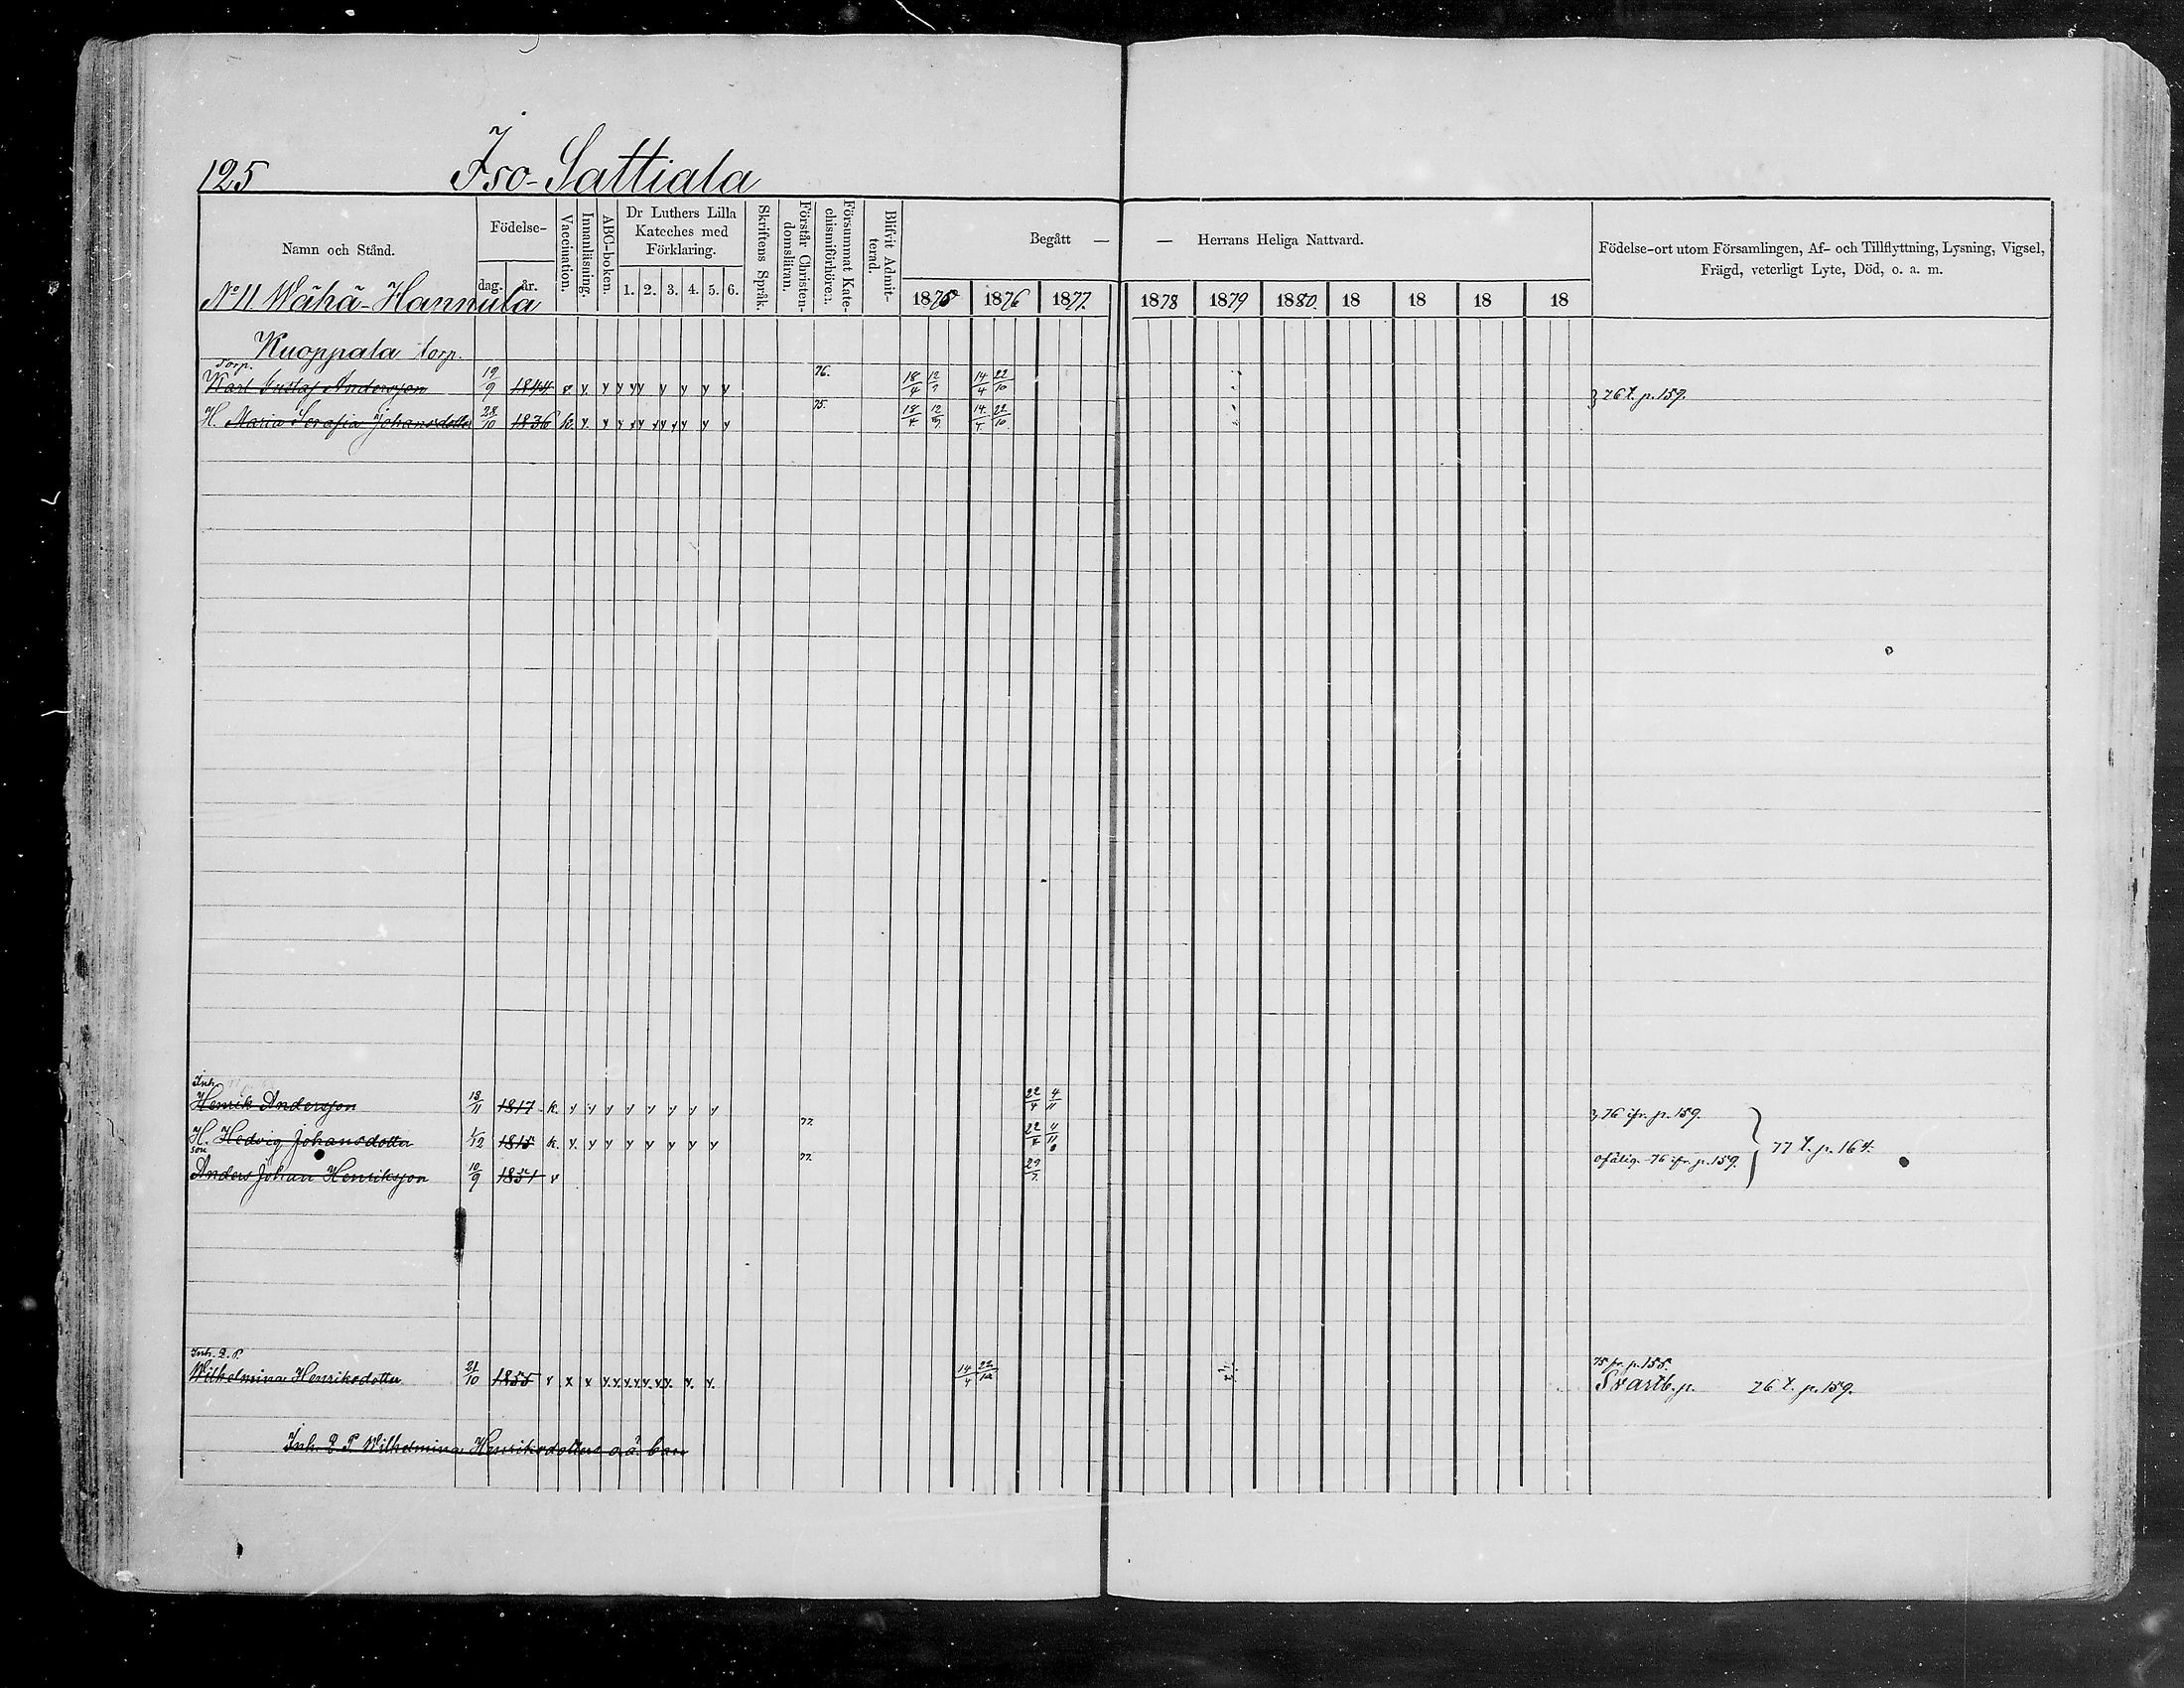 125 Iso-Sattiala
Namn och Stånd.
Födelse-
dag. år.
Vaccination.
Innanläsning.
ABC-boken.
Dr Luthers Lilla Kateches med Förklaring.
1. 2. 3. 4. 5. 6.
Skriftens Språk.
Förstår Christen-domsläran.
Försummat Kate-chismiförhören.
Blifvit Admit-terad.
Begått — — Herrans Heliga Nattvard.
1875 1876 1877. 1878 1879 1880. 18 18 18 18
Födelse-ort utom Församlingen, Af- och Tillflyttning, Lysning, Vigsel,
Frägd, veterligt Lyte, Död, o. a. m.
No 11 Wähä-Hannula
Kuoppala torp.
Torp.
Karl Gustaf Andersson 19/9 1844 76. 18/4 12/9 14/4 22/10 76 t. p. 159.
H. Maria Serafia Johansdotter 28/10 1836 k. 75. 18/4 12/9 14/4 22/10
Inh.
Henrik Andersson 13/11 1817 k. 22/4 4/11 76 ifr. p. 159.
H. Hedvig Johansdotter 1/12 1815 k. 77. 22/4 4/11 77 t. p. 164.
son
Anders Johan Henriksson 10/9 1851 v 77. 29/7 ofälig. -76 ifr. p. 159.
Inh. Q. P.
Wilhelmina Henriksdotter 21/10 1855 v 14/4 22/10 75 fr. p. 155.
Svartb. p. 76 t. p. 159.
Inh. Q. P. Wilhelmina Henriksdotters o. ä. barn